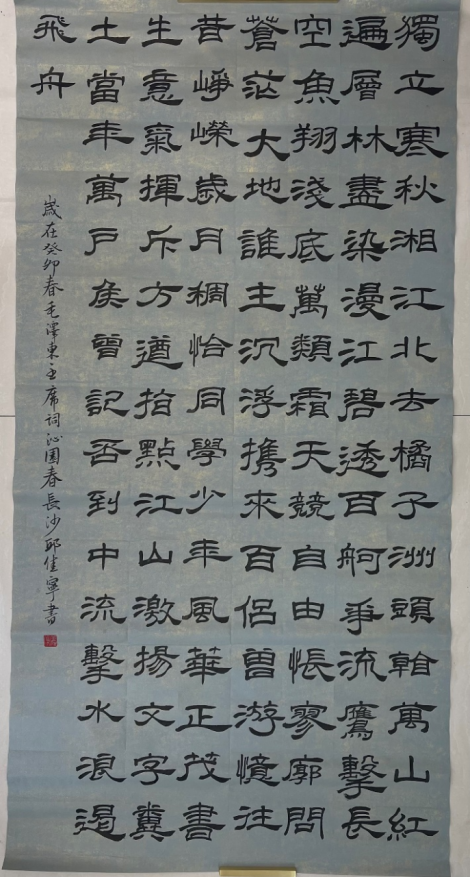 獨立寒秋湘江北去橘子洲頭看萬山紅
遍層林盡染漫江碧透百舸爭流鷹擊長
空魚翔淺底萬類霜天競自由悵寥廓問
蒼茫大地誰主沉浮携來百侶曾游憶往
昔崢嶸歲月稠恰同學少年風華正茂書
生意氣揮斥方遒指點江山激揚文字糞
土當年萬戶侯曾記否到中流擊水浪遏
飛舟
歲在癸卯春毛澤東主席詞沁園春長沙邱佳寧書